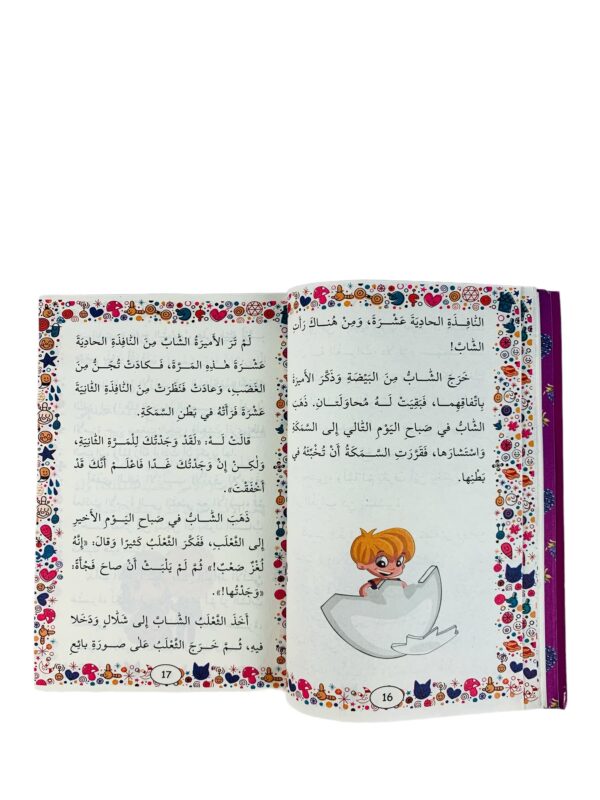 النَّافِذَةِ الحادِيَةَ عَشْـرَةَ، وَمِنْ هُنـاكَ رَأَتِ
الشّابَّ!
خَرَجَ الشّـابُّ مِنَ البَيْضَةِ وَذَكَّرَ الأميرَةَ
بِاتِّفاقِهِما، فَبَقِيَتْ لَـهُ مُحاوَلَتـانِ. ذَهَبَ
الشّـابُّ في صَبـاحِ اليَـوْمِ التّـالي إلى السَّمَكَةِ
وَاسْتَشارَها، فَقَرَّرَتِ السَّمَكَةُ أَنْ تُخَبِّئَهُ في
بَطْنِها.
16
لَمْ تَرَ الأميرَةُ الشّـابَّ مِنَ النّافِذَةِ الحادِيَةَ
عَشْـرَةَ هٰـذِهِ المَـرَّةَ، فَكـادَتْ تُجَـنُّ مِـنَ
الغَضَبِ، وَعادَتْ فَنَظَرَتْ مِنَ النّافِذَةِ الثّانِيَةَ
عَشْرَةَ فَرَأَتْهُ في بَطْنِ السَّمَكَةِ.
قالَتْ لَـهُ: «لَقَـدْ وَجَدْتُـكَ لِلْمَـرَّةِ الثّانِيَةِ،
وَلٰكِـنْ إنْ وَجَدْتُـكَ غَـدًا فَاعْلَـمْ أَنَّكَ قَدْ
أَخْفَقْتَ».
ذَهَبَ الشّـابُّ في صَباحِ اليَـوْمِ الأَخيرِ
إلى الثَّعْلَبِ، فَفَكَّرَ الثَّعْلَبُ كَثيرًا وَقالَ: «إِنَّهُ
لُغْزٌ صَعْبٌ!» ثُمَّ لَمْ يَلْبَثْ أَنْ صاحَ فَجْأَةً:
«وَجَدْتُها!».
أَخَذَ الثَّعْلَبُ الشّـابَّ إلى شَـلّالٍ وَدَخَلا
فيهِ، ثُـمَّ خَـرَجَ الثَّعْلَبُ عَلى صـورَةِ بائِعِ
17